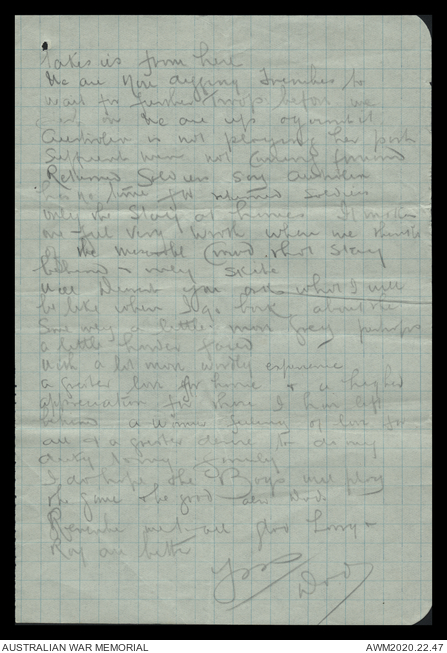 takes us from here
We are now digging trenches to
wait for further troops before we
go on we are up against it
Australia is not playing her part
Sufficient were not coming forward
Returned Soldiers say Australia
has no time for returned soldiers
only the Stay at homes It makes
one feel very when we think
of the miserable crowd that stay
behind &
Well you ask what I will
be like when I go back about the
Same way a little more grey perhaps
a little harder faced
With a lot more wordly experience
a greater love for home & a higher
appreciation for those I have left
behind a warmer feeling of love for
all & a greater desire to do my
duty to my family
I do hope the Boys will play
the game & be good Dad.
Remember me to all glad Harry &
Roy are better
Yours
Dad
AUSTRALIAN WAR MEMORIAL
AWM2020.22.47